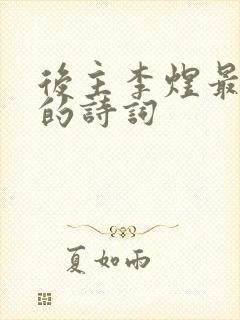 後主李煜最
的詩詞
夏如雨